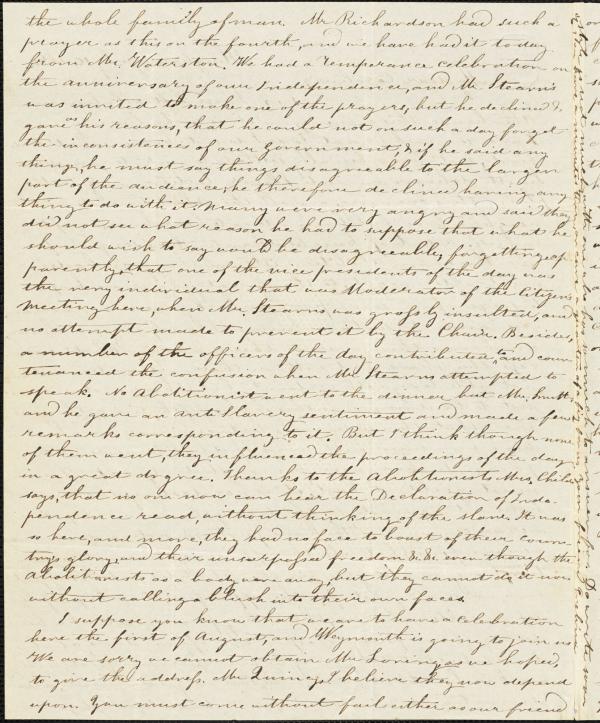 the whole family of man. Mr Richardson had such a
prayer as this on the fourth, and we have had it today
from Mr. Waterston. We had a Temperance celebration on
the anniversary of our Independence, and Mr Stearns
was invited to make one of the prayers, but he declined &
gave as his reasons, that he could not on such a day forget
the inconsistances of our Government, & if he said any
thing, he must say things disagreeable to the larger
part of the audience, he therefore declined having any
thing to do with it. Many were very angry and said they
did not see what reason he had to suppose that what he
should wish to say would be disagreeable, forgetting ap
parently, that one of the vice presidents of the day was
the very individual that was Moderator of the Citizens
Meeting here, when Mr. Stearns was grossly insulted, and
no attempt made to prevent it by the Chair. Besides,
a number of the officers of the day contributed to, and coun
tenanced the confusion when Mr Stearns attempted to
speak. No Abolitionist went to the dinner but Mr.
and he gave an anti Slavery sentiment and made a few
remarks corresponding to it. But I think though none
of them went, they influenced the proceedings of the day
in a great degree. Thanks to the Abolitionists Mrs. Child
says, that no one now can hear the Declaration of Inde
pendence read, without thinking of the slave. It was
so here, and more, they had no face to boast of their coun
trys glory, and their unsurpassed freedom &c &c even though the
Abolitionists as a body were away, but they cannot do it now
without calling a blush into their own faces.
I suppose you know that we are to have a celebration
here the first of August, and Weymouth is going to join us
We are sorry we cannot obtain Mr Loring, as we hoped,
to give the address. Mr Quincy, I believe they now depend
upon. You must come without fail either as our friend